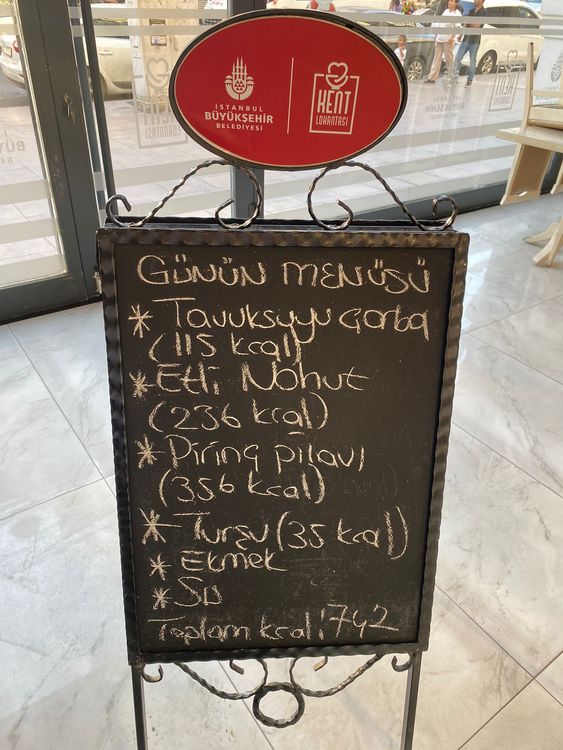 İSTANBUL
BÜYÜKŞEHİR
BELEDİYESİ
KENT
LOKANTASI
GÜNÜN MENÜSÜ
* Tavuksuyu Çorba
(115 kcal)
* Etli Nohut
(236 kcal)
* Pirinç pilavı
(356 kcal)
* Turşu (35 kcal)
* Ekmek
* Su
Toplam kcal: 742